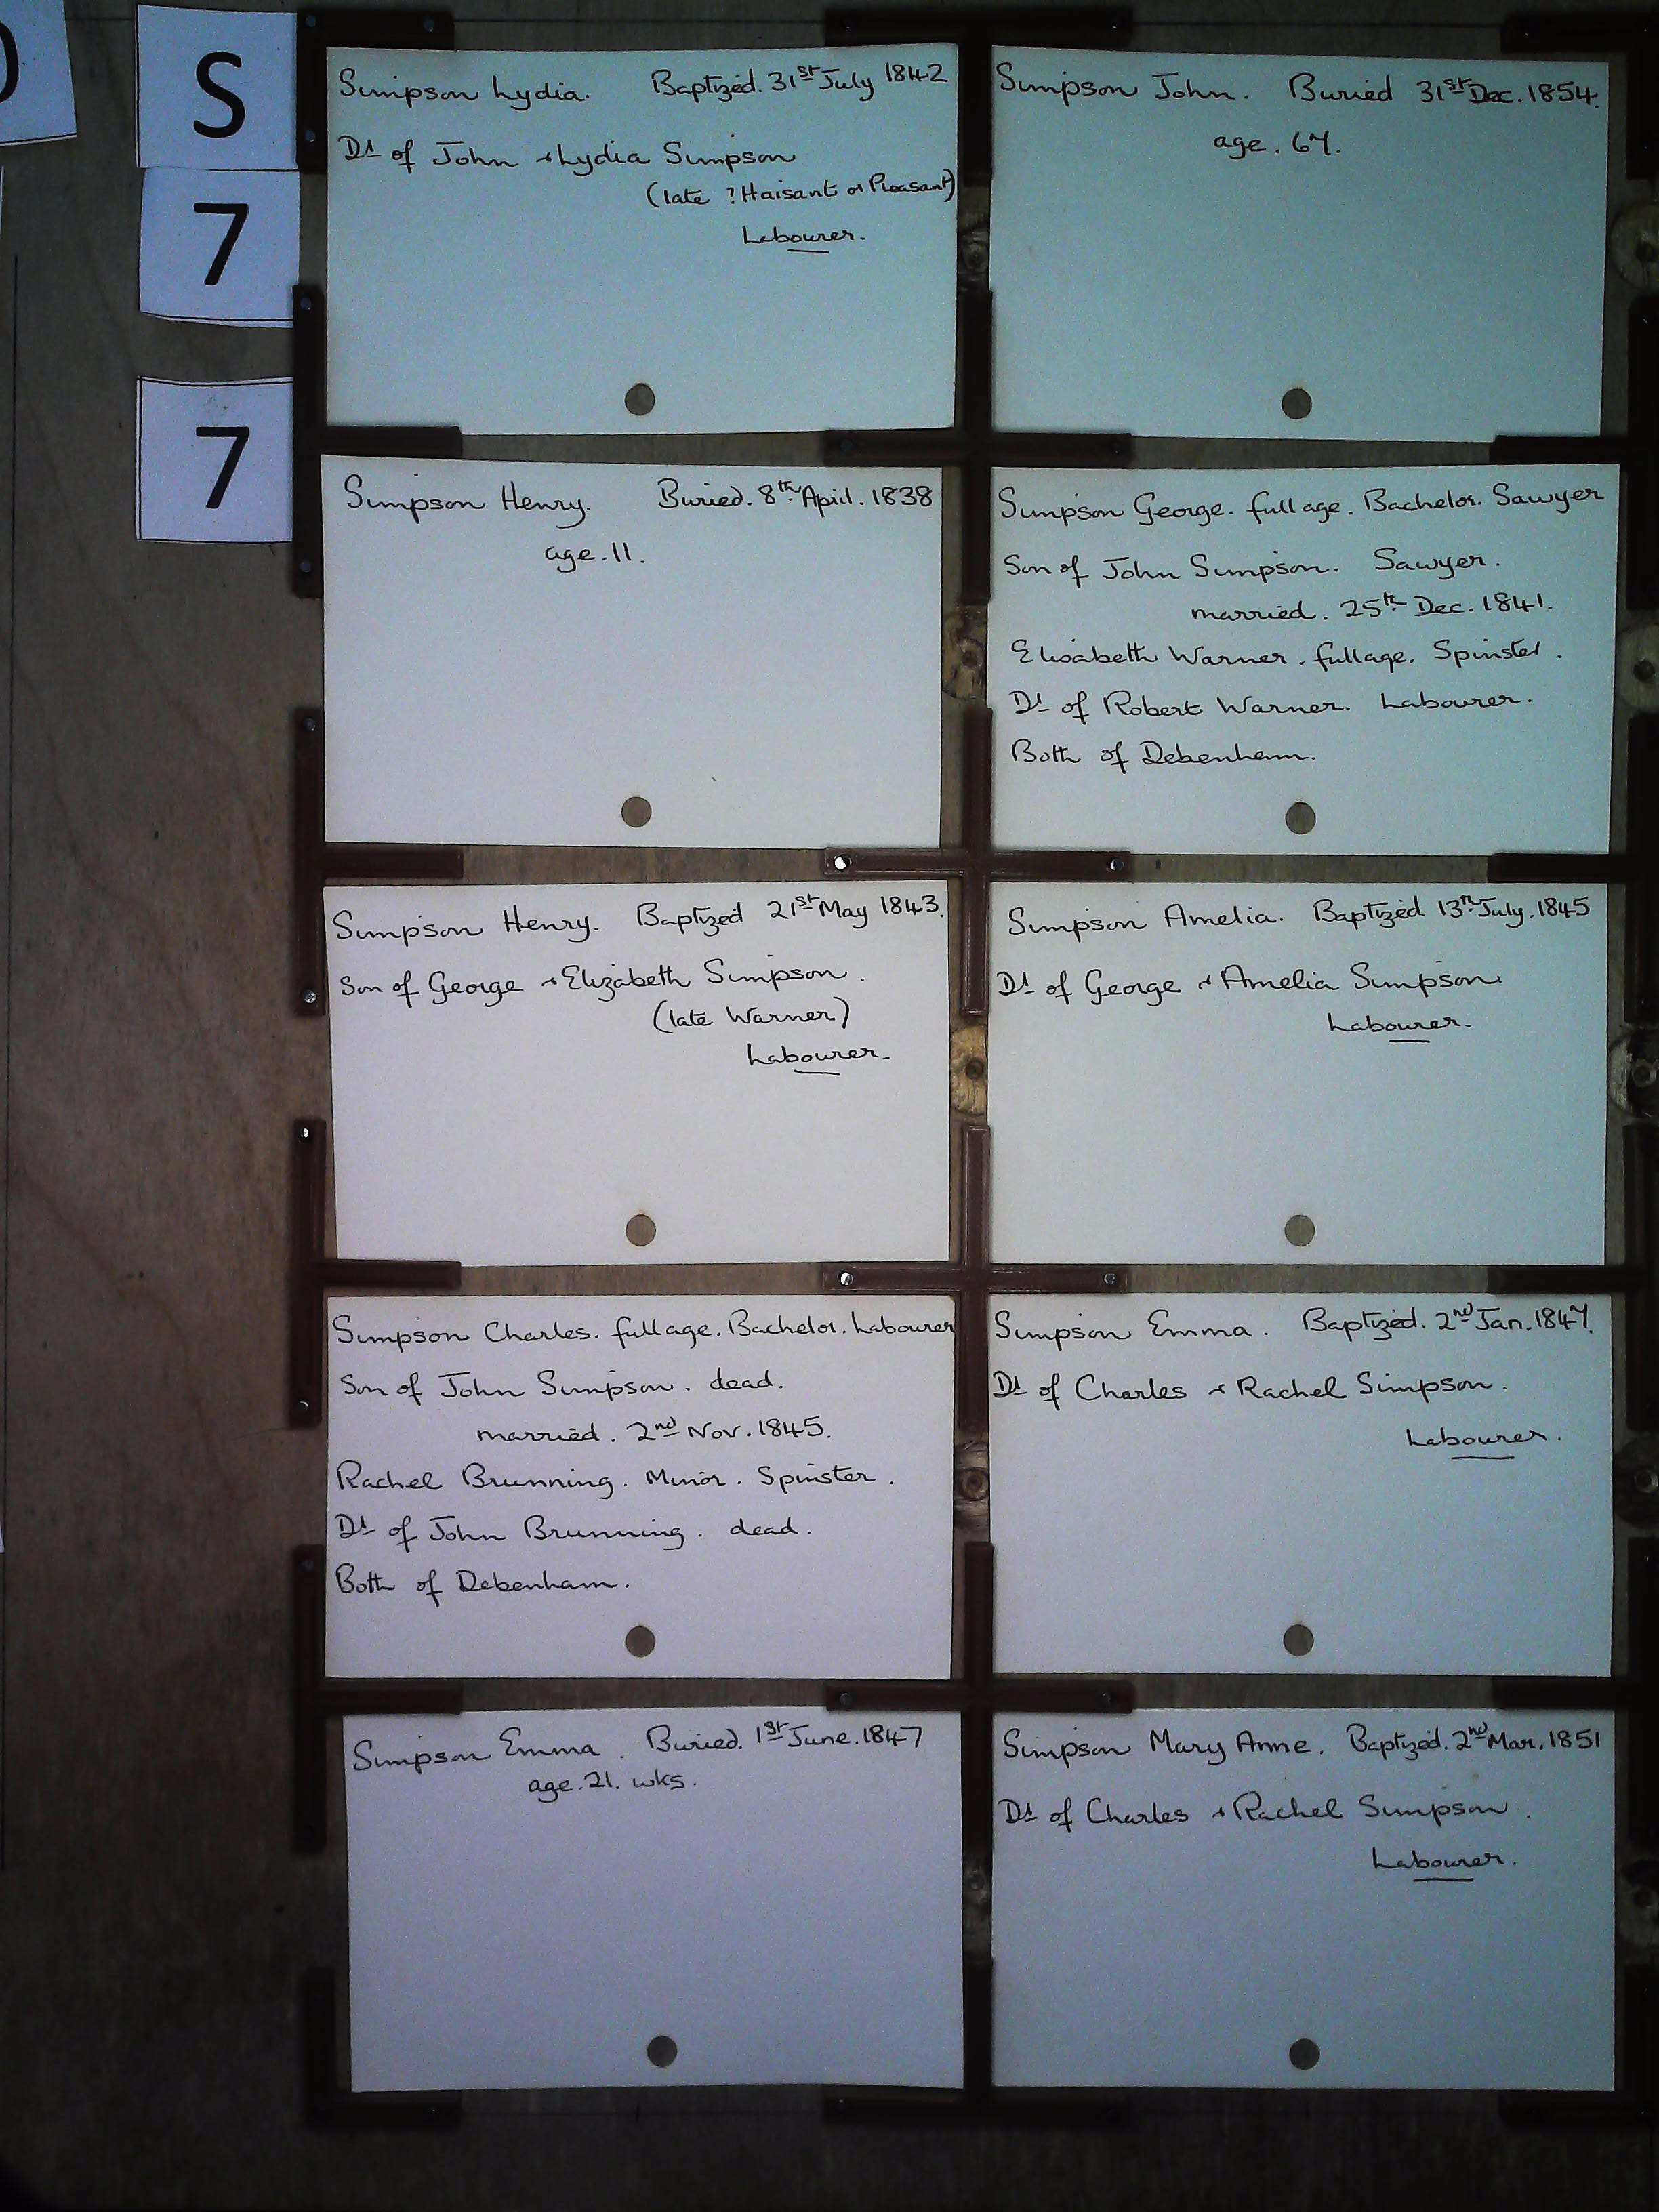 S
7
7
Simpson Lydia. Baptized. 31st July 1842
Dr of John & Lydia Simpson
(late ? Haisant or Pleasant)
Labourer.
Simpson John. Buried 31st Dec. 1854.
age. 67.
Simpson Henry. Buried. 8th April. 1838
age. 11.
Simpson George. full age. Bachelor. Sawyer
Son of John Simpson. Sawyer.
married. 25th Dec. 1841.
Elisabeth Warner. full age. Spinster.
Dr of Robert Warner. Labourer.
Both of Debenham.
Simpson Henry. Baptized 21st May 1843.
Son of George & Elizabeth Simpson.
(late Warner)
Labourer.
Simpson Amelia. Baptized 13th July. 1845
Dr of George & Amelia Simpson.
Labourer.
Simpson Charles. full age. Bachelor. Labourer
Son of John Simpson. dead.
married. 2nd Nov. 1845.
Rachel Brunning. Minor. Spinster.
Dr of John Brunning. dead.
Both of Debenham.
Simpson Emma. Baptized. 2nd Jan. 1847.
Dr of Charles & Rachel Simpson.
Labourer.
Simpson Emma. Buried. 1st June. 1847
age. 21. wks.
Simpson Mary Anne. Baptized. 2nd Mar. 1851
Dr of Charles & Rachel Simpson.
Labourer.